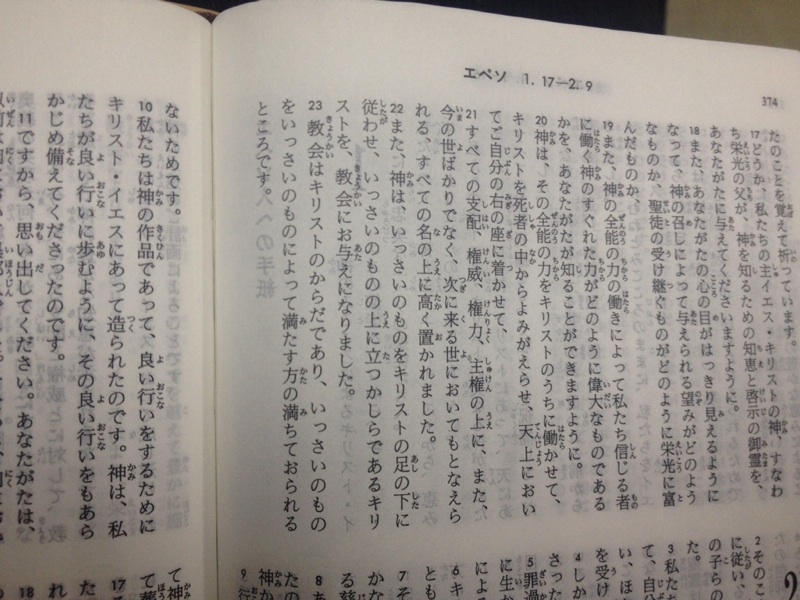 エペソ 1. 17—2. 9
374
たのことを覚えて祈っています。
17どうか、私たちの主イエス・キリストの神、すなわ
ち栄光の父が、神を知るための知恵と啓示の御霊を、
あなたがたに与えてくださいますように。
18また、あなたがたの心の目がはっきり見えるように
なって、神の召しによって与えられる望みがどのよう
なものか、聖徒の受け継ぐものがどのように栄光に富
んだものか、
19また、神の全能の力の働きによって私たち信じる者
に働く神のすぐれた力がどのように偉大なものである
かを、あなたがたが知ることができますように。
20神は、その全能の力をキリストのうちに働かせて、
キリストを死者の中からよみがえらせ、天上におい
てご自分の右の座に着かせて、
21すべての支配、権威、権力、主権の上に、また、
今の世ばかりでなく、次に来る世においてもとなえら
れる、すべての名の上に高く置かれました。
22また、神は、いっさいのものをキリストの足の下に
従わせ、いっさいのものの上に立つかしらであるキリ
ストを、教会にお与えになりました。
23教会はキリストのからだであり、いっさいのもの
をいっさいのものによって満たす方の満ちておられる
ところです。
2そのこ
に従い、
の子らの
た。
3私たち
て、自分
い、ほ
を受け
4しか
さった
5罪過
に生か
6キ
とも
7そ
かな
る慈
8あ
たの
神か
9行
ないためです。
10私たちは神の作品であって、良い行いをするために
キリスト・イエスにあって造られたのです。神は、私
たちが良い行いに歩むように、その良い行いをもあら
かじめ備えてくださったのです。
11ですから、思い出してください。あなたがたは、
て神
17
た
れ
18